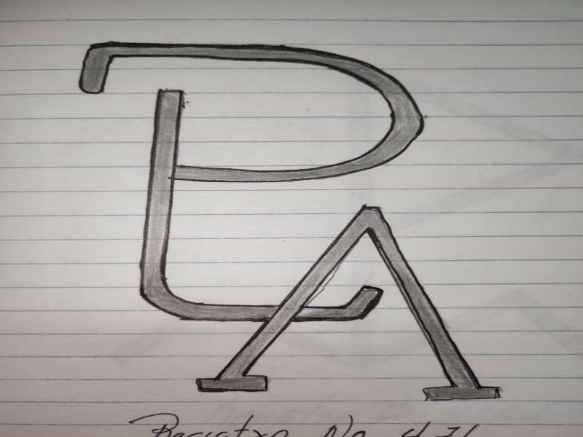 PLA
Registro No